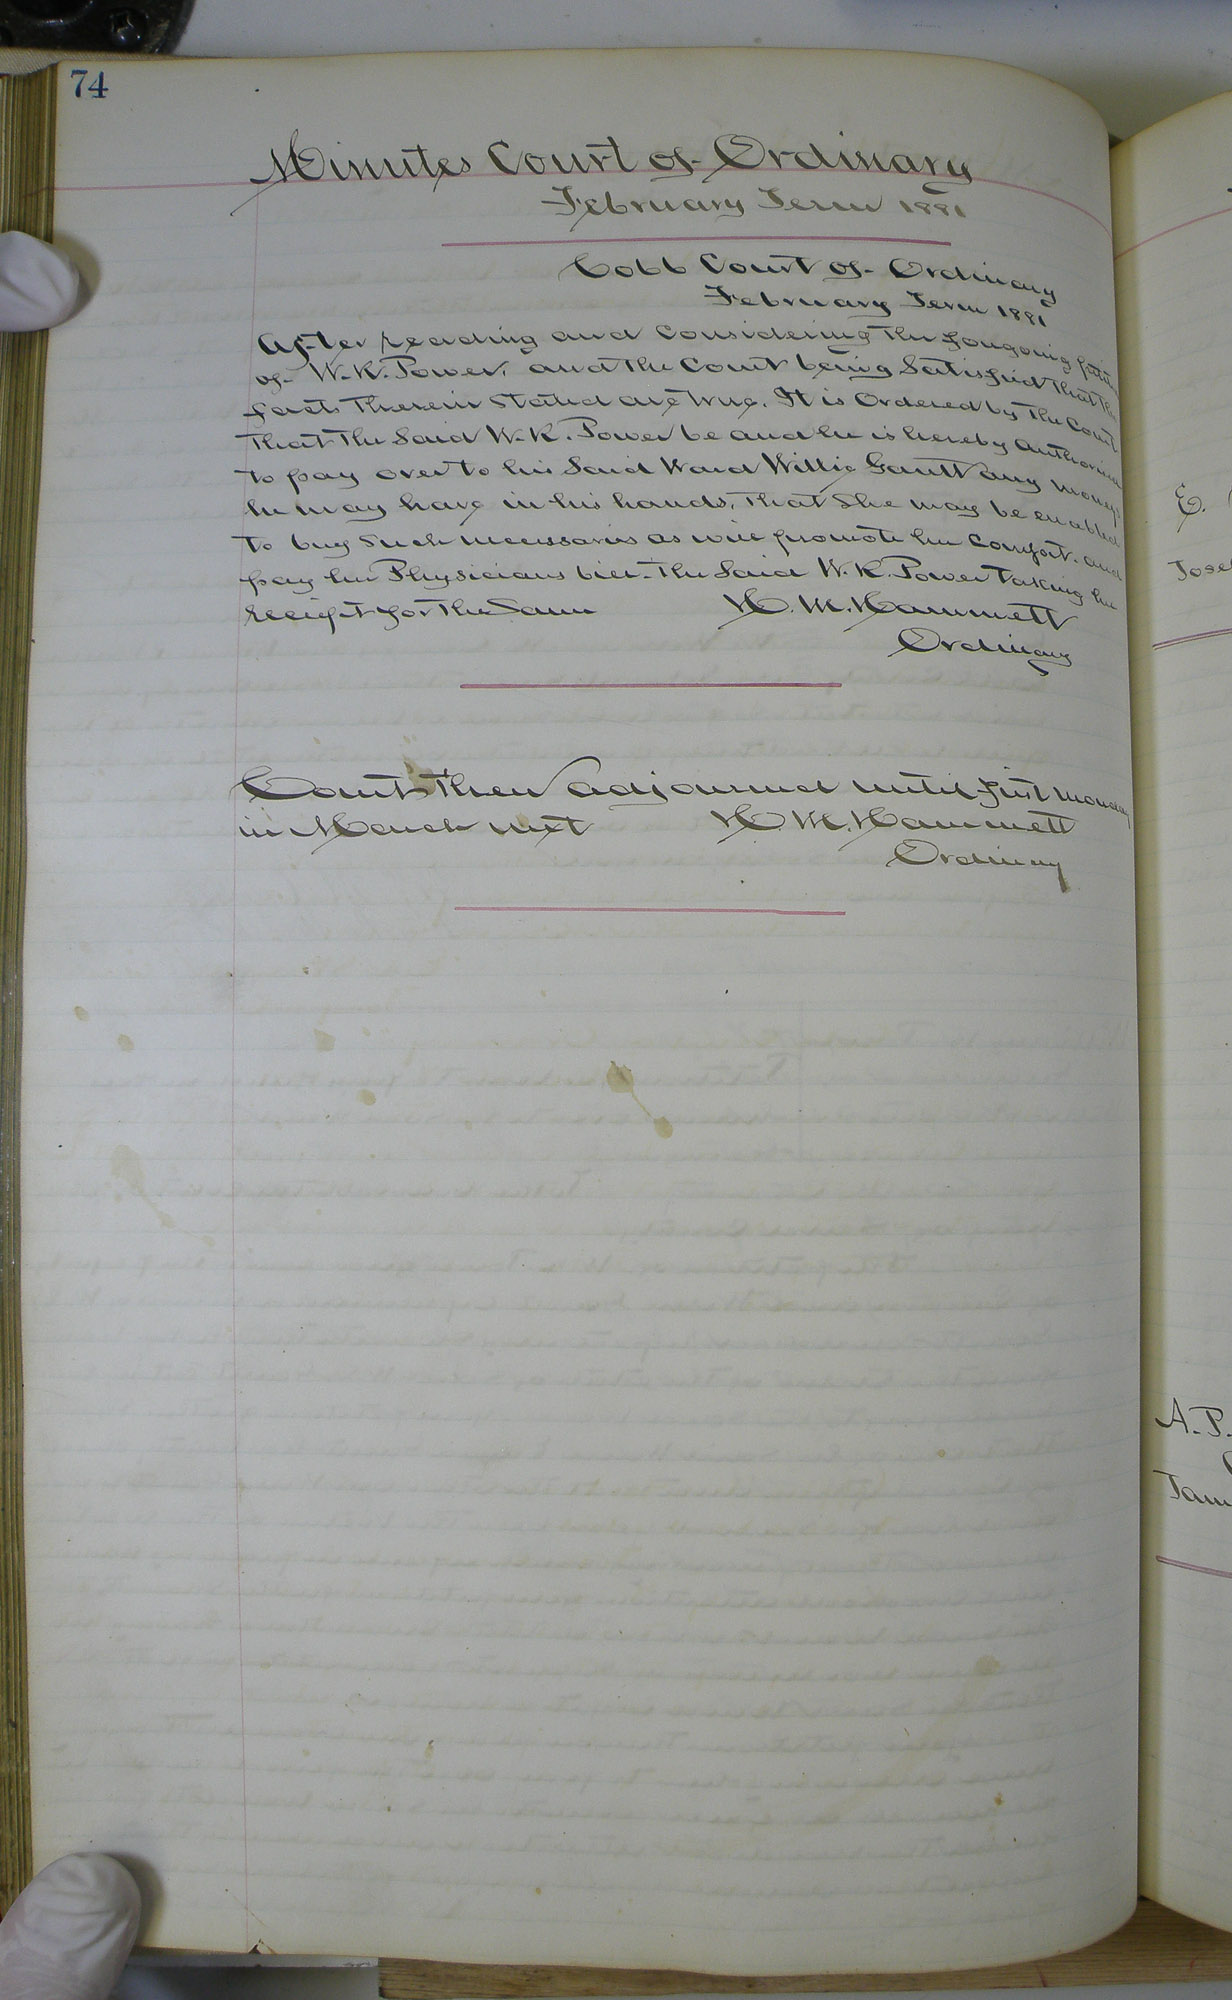 74
Minutes Court of Ordinary
February Term 1881
Cobb Court of Ordinary
February Term 1881
After reading and Considering The Forgoing
of W. K. Power, and The Court being Satisfied That The
facts Therein Stated are True. It is Ordered by The Court
That The Said W. K. Power be and he is hereby Authorized
To pay over To his Said Ward Willie Gantt any moneys
he may have in his hands, That She may be enabled
To buy Such necessaries as will promote her Comfort. and
pay her Physicians bill. The Said W. K. Power Taking her
receipt for The Same
H. M. Hammett
Ordinary
Court Then adjourned until First Monday
in March next
H. M. Hammett
Ordinary
E.
A. P.